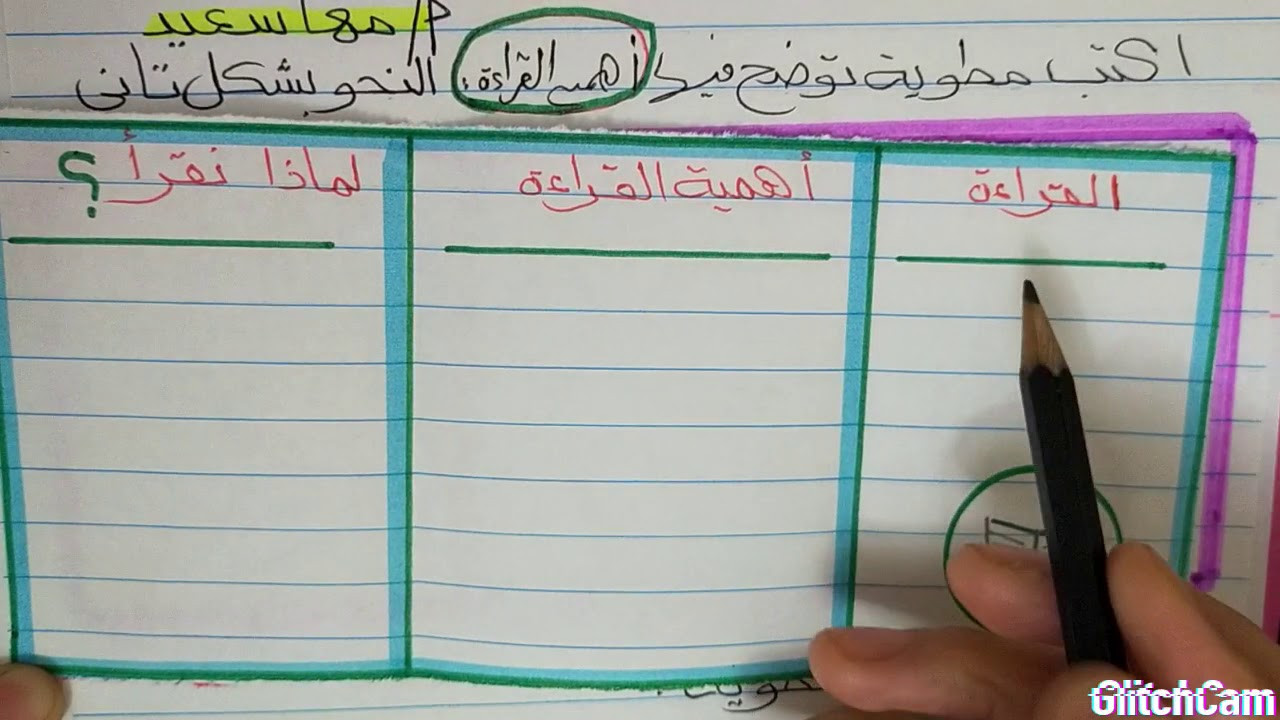 م/ مها سعيد
اكتب مطوية توضح فيها أهمية القراءة. النحو بشكل تانى
القراءة
أهمية القراءة
لماذا نقرأ؟
GlitchCam